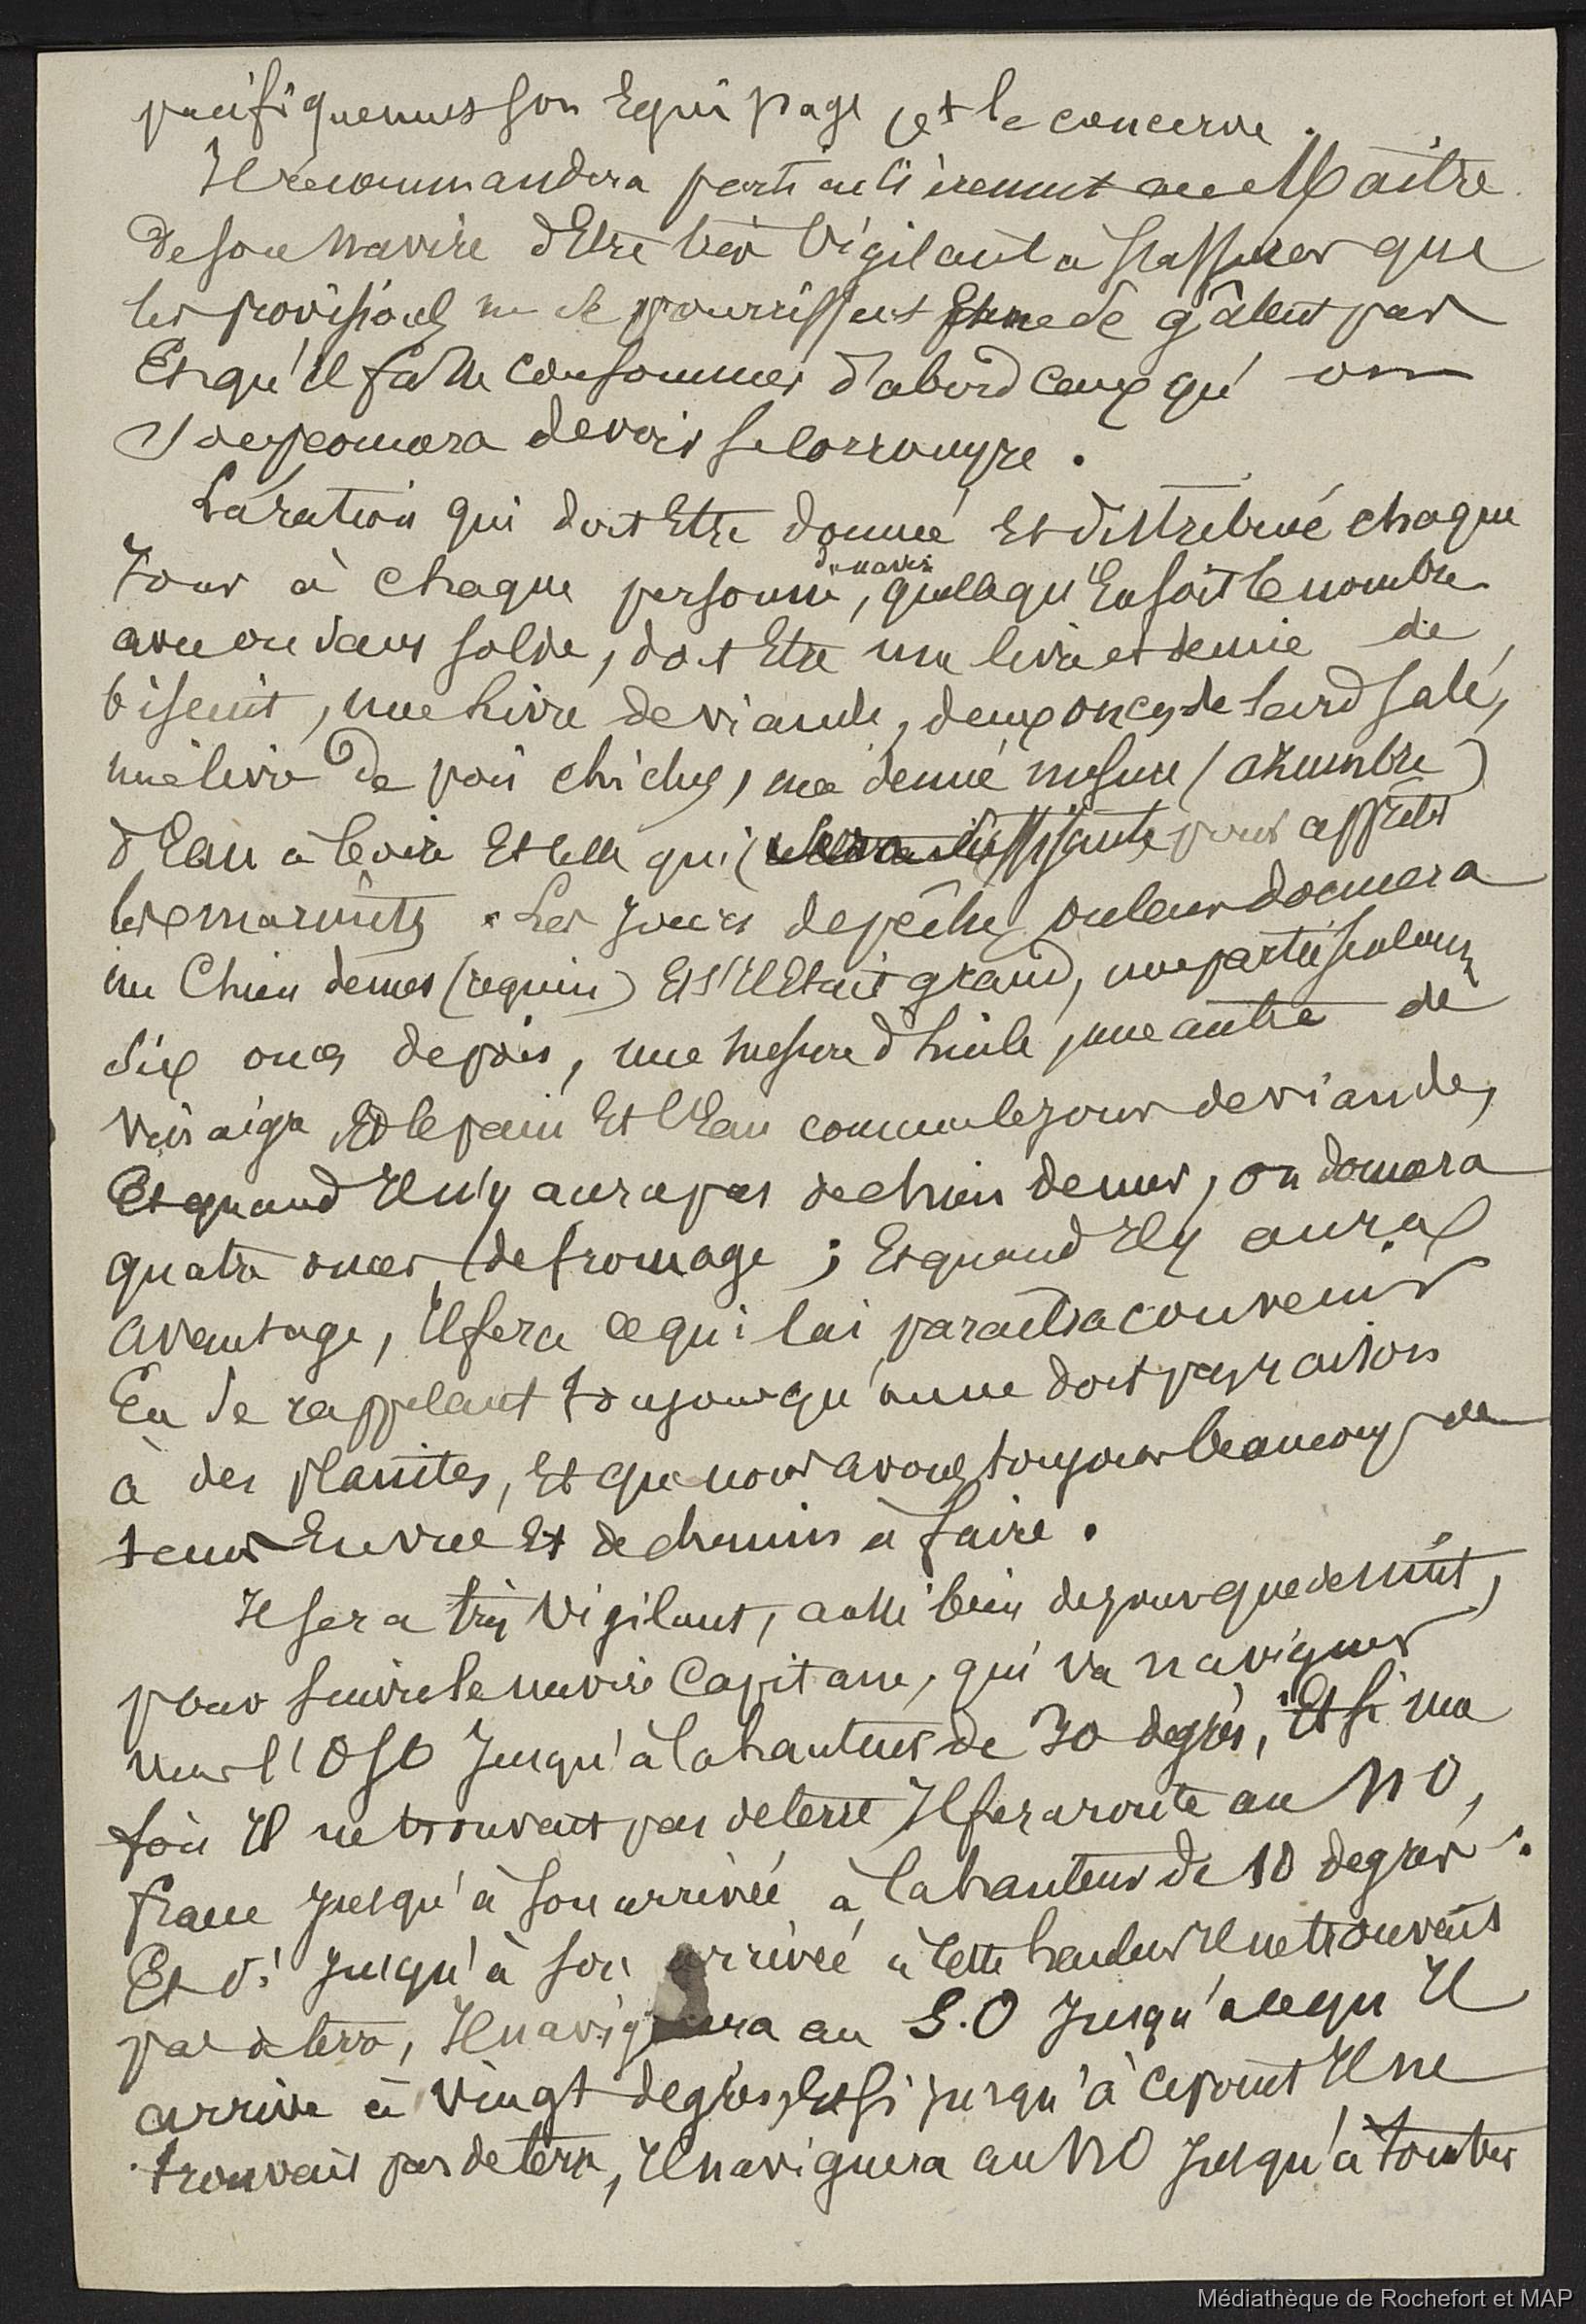 pacifiquement son Equipage et la concerne.
Il recommandera particulièrement au Maître
de son navire d'Etre très Vigilant à s'assurer que
les provisions ne se pourrissent et ne se gâtent pas
Et qu'il fasse consommer d'abord ceux qu'on
devoir se corrompre.
La ration qui doit Etre donnée Et distribuée chaque
Jour à chaque personne du navire, quelle qu'En soit le nombre
avec ou sans solde, doit Etre une livre et demie de
biscuit, une livre de viande, deux onces de lard salé,
une livre de pois chiches, une demie mesure (azumbre)
d'Eau à boire Et celle qui suffisante pour apprêter
les marmites. Les jours de pêche on leur donnera
un Chien de mer (requin) Et s'Il Etait grand, une partie seulement
six onces de pois, une mesure d'huile, une autre de
vinaigre, Et le pain Et l'Eau comme le jour de viande,
Et quand Il n'y aura pas de chien de mer, on donnera
quatre onces de fromage ; Et quand Il y aura
avantage, Il fera ce qui lui paraîtra convenir
En se rappelant toujours qu'on ne doit pas raison
à des plaintes, Et que nous avons toujours beaucoup de
temps En vue Et de chemin à faire.
Il sera très Vigilant, aussi bien de jour que de nuit,
pour suivre le navire Capitane, qui va naviguer
vers l'OSO Jusqu'à la hauteur de 30 degrés, Et si une
fois Il ne trouvait pas de terre Il fera route au NO,
franc jusqu'à son arrivée à la hauteur de 10 degrés.
Et si Jusqu'à son arrivée à cette hauteur Il ne trouvait
pas de terre, Il naviguera au S.O Jusqu'à ce qu'Il
arrive à Vingt degrés, Et si jusqu'à ce point Il ne
trouvait pas de terre, Il naviguera au NO Jusqu'à tomber
Médiathèque de Rochefort et MAP